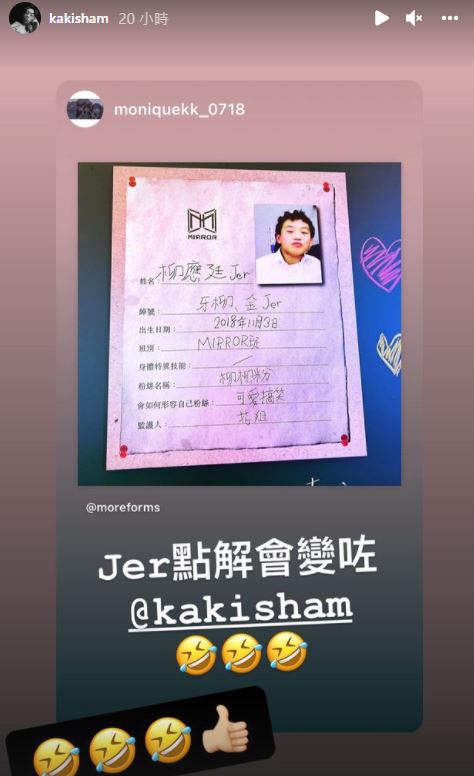 kakisham 20 小時
moniquekk_0718
MIRROR
姓名: 柳應廷 Jer
綽號: 牙柳、金Jer
出生日期: 2018年11月3日
班別: MIRROR班
身體特異技能:
粉絲名稱: 柳柳粉
會如何形容自己粉絲: 可愛搞笑
監護人: 花姐
@moreforms
Jer點解會變咗
@kakisham
🤣🤣🤣
🤣🤣🤣👍🏻